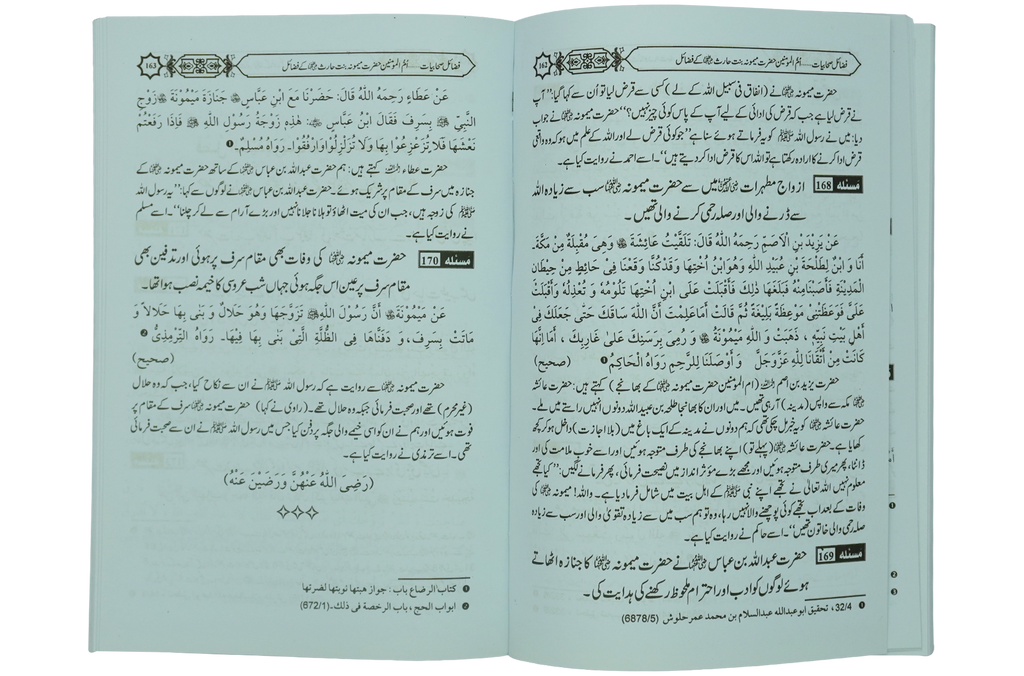 162
فضائل صحابیات ۔۔۔ اُمُّ المؤمنین حضرت میمونہ بنت حارث ؓ کے فضائل
حضرت میمونہ ؓ نے (انفاق فی سبیل اللہ کے لے) کسی سے قرض لیا تو اُن سے کہا گیا: "آپ
نے قرض لیا ہے جب کہ قرض کی ادائی کے لیے آپ کے پاس کوئی چیز نہیں؟" حضرت میمونہ ؓ نے جواب
دیا: میں نے رسول اللہ ﷺ کو یہ فرماتے ہوئے سنا ہے "جو کوئی قرض لے اور اللہ کے علم میں ہو کہ وہ واقعی
قرض ادا کرنے کا ارادہ رکھتا ہے تو اللہ اس کا قرض ادا کر دیتے ہیں"۔ اسے احمد نے روایت کیا ہے۔
مسئلہ 168 ازواج مطہرات ؓ میں سے حضرت میمونہ ؓ سب سے زیادہ اللہ
سے ڈرنے والی اور صلہ رحمی کرنے والی تھیں۔
عَنْ يَزِيْدَ بْنِ الْاَصَمِّ رَحِمَهُ اللّٰهُ قَالَ: تَلَقَّيْتُ عَائِشَةَ ؓ وَهِيَ مُقْبِلَةٌ مِنْ مَكَّةَ۔
أَنَا وَ ابْنٌ لِطَلْحَةَ بْنِ عُبَيْدِ اللّٰهِ وَهُوَ ابْنُ اُخْتِهَا وَقَدْ كُنَّا وَقَعْنَا فِي حَائِطٍ مِنْ حِيْطَانِ
الْمَدِيْنَةِ فَأَصَبْنَا مِنْهُ فَبَلَغَهَا ذٰلِكَ فَأَقْبَلَتْ عَلَى ابْنِ اُخْتِهَا تَلُوْمُهٗ وَ تُعْذِلُهٗ وَأَقْبَلَتْ
عَلَيَّ فَوَعَظَتْنِيْ مَوْعِظَةً بَلِيْغَةً ثُمَّ قَالَتْ أَمَا عَلِمْتَ أَنَّ اللّٰهَ سَاقَكَ حَتّٰى جَعَلَكَ فِيْ
أَهْلِ بَيْتِ نَبِيِّهٖ ، ذَهَبَتْ وَ اللّٰهِ مَيْمُوْنَةُ ؓ وَ رُمِيَ بِرَسَنِكَ عَلٰى غَارِبِكَ ، أَمَا إِنَّهَا
كَانَتْ مِنْ أَتْقَانَا لِلّٰهِ عَزَّوَجَلَّ وَ أَوْصَلِنَا لِلرَّحِمِ رَوَاهُ الْحَاكِمُ ❶ (صحیح)
حضرت یزید بن اصم ؒ (ام المؤمنین حضرت میمونہ ؓ کے بھانجے) کہتے ہیں: حضرت عائشہ
مکہ سے واپس (مدینہ) آرہی تھیں۔ میں اور ان کا بھانجا طلحہ بن عبید اللہ دونوں انہیں راستے میں ملے۔
حضرت عائشہ ؓ کو یہ خبر مل چکی تھی کہ ہم دونوں نے مدینہ کے ایک باغ میں (بلا اجازت) داخل ہو کر کچھ
کھایا ہے۔ حضرت عائشہ ؓ (پہلے تو) اپنے بھانجے کی طرف متوجہ ہوئیں اور اسے خوب ملامت کی اور
ڈانٹا، پھر میری طرف متوجہ ہوئیں اور مجھے بڑے مؤثر انداز میں نصیحت فرمائی، پھر فرمانے لگیں: "کیا تجھے
معلوم نہیں اللہ تعالیٰ نے تجھے اپنے نبی ﷺ کے اہل بیت میں شامل فرمادیا ہے۔ واللہ! میمونہ ؓ کی
وفات کے بعد اب تجھے کوئی پوچھنے والا نہیں رہا، وہ تو ہم سب میں سے زیادہ تقویٰ والی اور سب سے زیادہ
صلہ رحمی والی خاتون تھیں"۔ اسے حاکم نے روایت کیا ہے۔
مسئلہ 169 حضرت عبداللہ بن عباس ؓ نے حضرت میمونہ ؓ کا جنازہ اٹھاتے
ہوئے لوگوں کو ادب اور احترام ملحوظ رکھنے کی ہدایت کی۔
❶ 32/4 ، تحقیق ابو عبداللہ عبدالسلام بن محمد عمر حلوش (6878/5)
163
فضائل صحابیات ۔۔۔ اُمُّ المؤمنین حضرت میمونہ بنت حارث ؓ کے فضائل
عَنْ عَطَاءٍ رَحِمَهُ اللّٰهُ قَالَ: حَضَرْنَا مَعَ ابْنِ عَبَّاسٍ ؓ جَنَازَةَ مَيْمُوْنَةَ ؓ زَوْجِ
النَّبِيِّ ﷺ بِسَرِفَ فَقَالَ ابْنُ عَبَّاسٍ ؓ: هٰذِهٖ زَوْجَةُ رَسُوْلِ اللّٰهِ ﷺ فَإِذَا رَفَعْتُمْ
نَعْشَهَا فَلَا تُزَعْزِعُوْا بِهَا وَلَا تُزَلْزِلُوْا وَارْفُقُوْا۔ رَوَاهُ مُسْلِمٌ۔❶
حضرت عطاء ؒ کہتے ہیں: ہم حضرت عبداللہ بن عباس ؓ کے ساتھ حضرت میمونہ ؓ کے
جنازہ میں سرف کے مقام پر شریک ہوئے۔ حضرت عبداللہ بن عباس ؓ نے لوگوں سے کہا: "یہ رسول اللہ
ﷺ کی زوجہ ہیں، جب ان کی میت اٹھاؤ تو ہلانا جلانا نہیں اور بڑے آرام سے لے کر چلنا"۔ اسے مسلم
نے روایت کیا ہے۔
مسئلہ 170 حضرت میمونہ ؓ کی وفات بھی مقام سرف پر ہوئی اور تدفین بھی
مقام سرف پر عین اس جگہ ہوئی جہاں شب عروسی کا خیمہ نصب ہوا تھا۔
عَنْ مَيْمُوْنَةَ ؓ أَنَّ رَسُوْلَ اللّٰهِ ﷺ تَزَوَّجَهَا وَهُوَ حَلَالٌ وَ بَنٰى بِهَا حَلَالًا وَ
مَاتَتْ بِسَرِفَ، وَ دَفَنَّاهَا فِي الظُّلَّةِ الَّتِيْ بَنٰى بِهَا فِيْهَا۔ رَوَاهُ التِّرْمِذِيُّ ❷
(صحیح)
حضرت میمونہ ؓ سے روایت ہے کہ رسول اللہ ﷺ نے ان سے نکاح کیا، جب کہ وہ حلال
(غیر محرم) تھے اور صحبت فرمائی جبکہ وہ حلال تھے۔ (راوی نے کہا) حضرت میمونہ ؓ سرف کے مقام پر
فوت ہوئیں اور ہم نے ان کو اسی خیمے والی جگہ پر دفن کیا جس میں رسول اللہ ﷺ نے ان سے صحبت فرمائی
تھی۔ اسے ترمذی نے روایت کیا ہے۔
(رَضِيَ اللّٰهُ عَنْهُنَّ وَرَضِيْنَ عَنْهُ)
❶ کتاب الرضاع باب : جواز هبتها نوبتها لضرتها
❷ ابواب الحج ، باب الرخصة فی ذلك۔ (672/1)